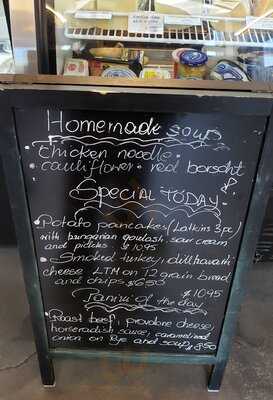 Homemade soups
• Chicken noodle •
• cauliflower • red borscht
Special TODAY
• Potato pancakes / Latkins 3pc
with hungarian goulash, sour cream
and pickles $10.95
• Smoked turkey, dill havarti
cheese LTM on 12 grain bread
and chips $6.50
$10.95
Panini of the day
• Roast beef, provolone cheese,
horseradish sauce, caramelized
onion on Rye and soup $8.50